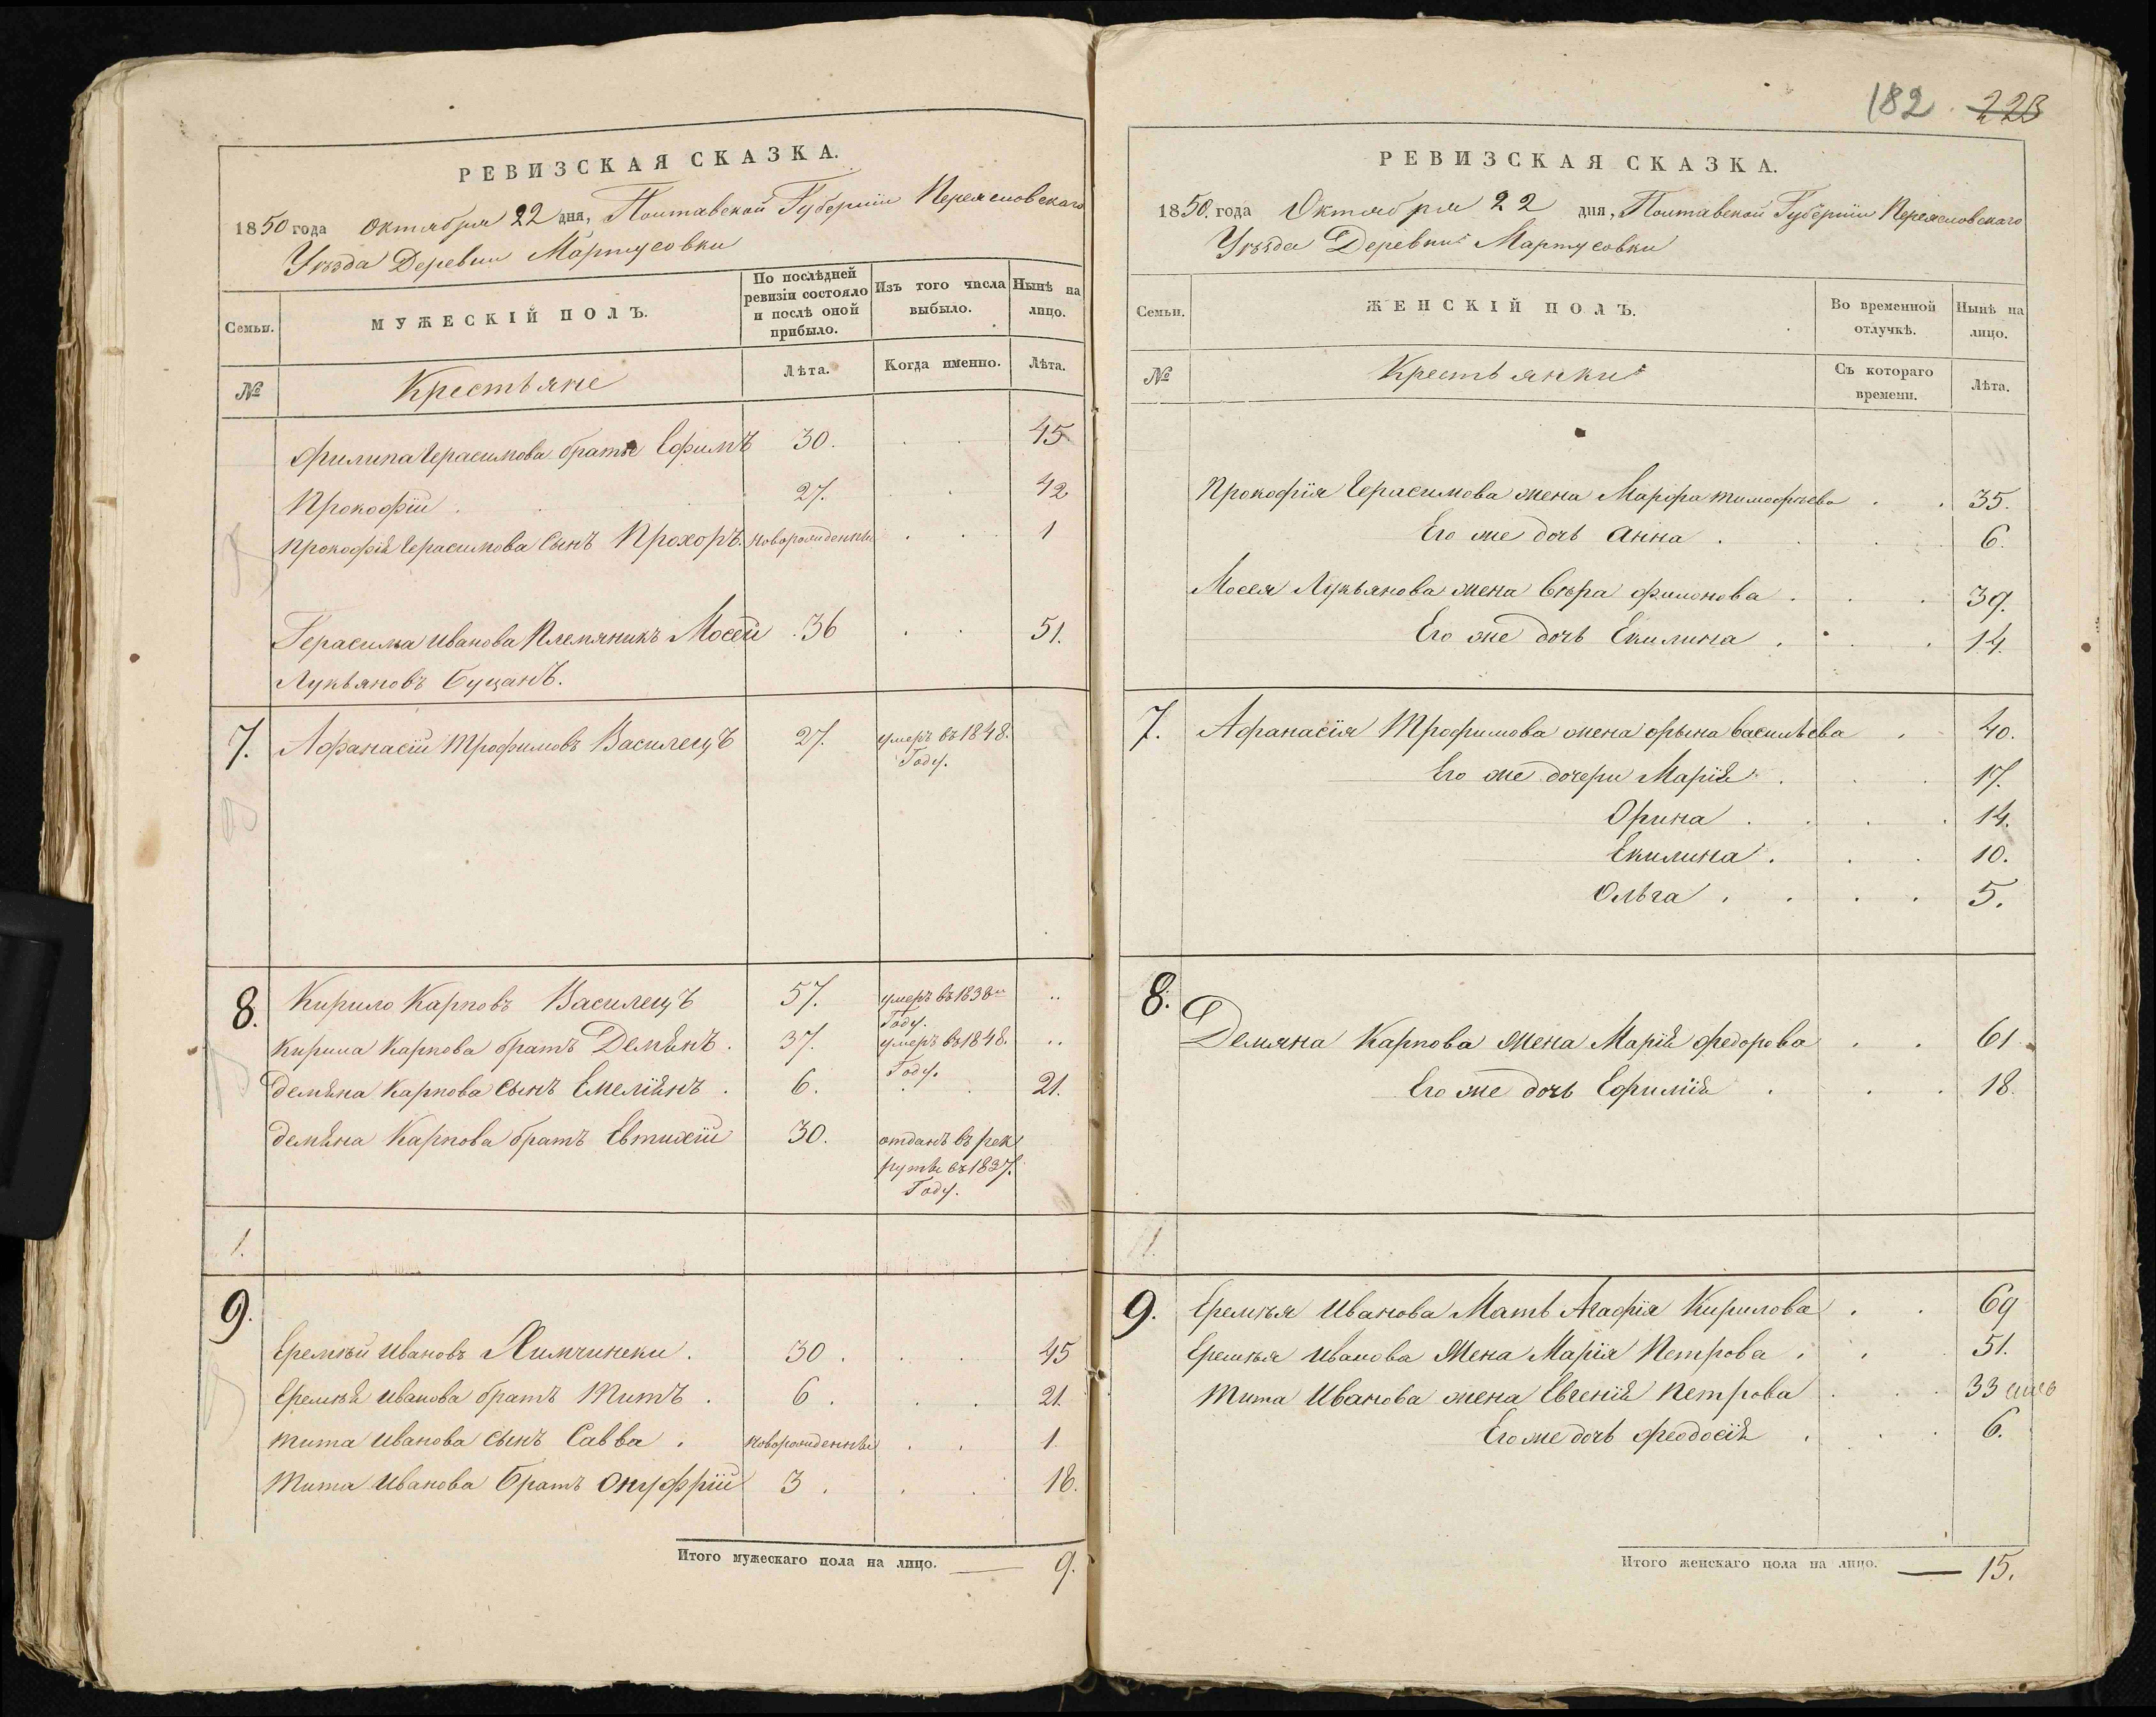 РЕВИЗСКАЯ СКАЗКА.
1850 года Октября 22 дня, Полтавской Губерніи Переясловскаго
Уѣзда Деревни Мартусовки
Семьи.
МУЖЕСКІЙ ПОЛЪ.
По послѣдней ревизіи состояло и послѣ оной прибыло.
Изъ того числа выбыло.
Нынѣ на лицо.
№
Крестьяне
Лѣта.
Когда именно.
Лѣта.
Филипа Герасимова братья Ефимъ 30. 45
Прокофій 27. 42
Прокофія Герасимова Сынъ Прохоръ. новорожденный 1
Герасима Иванова Племяникъ Мосей 36 51.
Лукьяновъ Буцанъ.
7. Афанасій Трофимовъ Василецъ 27. умеръ въ 1848.
Году.
8. Кирило Карповъ Василецъ 57. умеръ въ 1838 м
Году.
Кирила Карпова братъ Демянъ. 37. умеръ въ 1848.
Году.
Демяна Карпова сынъ Емеліянъ. 6. 21.
Демяна Карпова братъ Евтихій 30. отданъ въ рек
руты въ 1837.
Году.
1.
9.
Еремѣй Ивановъ Химчински. 30. 45
Еремѣя Иванова братъ Титъ. 6. 21.
Тита Иванова сынъ Савва. новорожденный 1
Тита Иванова Братъ Онуфрій 3. 18.
Итого мужескаго пола на лицо. — 9.
182 223
РЕВИЗСКАЯ СКАЗКА.
1850. года Октября 22 дня, Полтавской Губерніи Переясловскаго
Уѣзда Деревни Мартусовки
Семьи.
ЖЕНСКІЙ ПОЛЪ.
Во временной отлучкѣ.
Нынѣ на лицо.
№
Крестьянки
Съ котораго времени.
Лѣта.
Прокофія Герасимова жена Марфа Тимофѣева 35.
Его же дочь Анна. 6.
Мосея Лукьянова жена Вѣра Филонова. 39.
Его же дочь Екилина. 14.
7. Афанасія Трофимова жена Орына Васильева 40.
Его же дочери Марія. 17.
Орина. 14.
Екилина. 10.
Ольга. 5.
8.
Демяна Карпова жена Марія Федорова 61
Его же дочь Ефимія 18.
11.
9. Еремѣя Иванова Мать Агафія Кирилова. 69
Еремѣя Иванова Жена Марія Петрова. 51.
Тита Иванова жена Евгенія Петрова 33
Его же дочь Феодосія 6.
Итого женскаго пола на лицо. — 15.